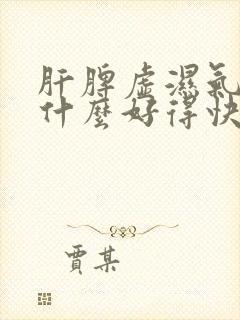 肝脾虛濕氣
什麼好得快
賈某